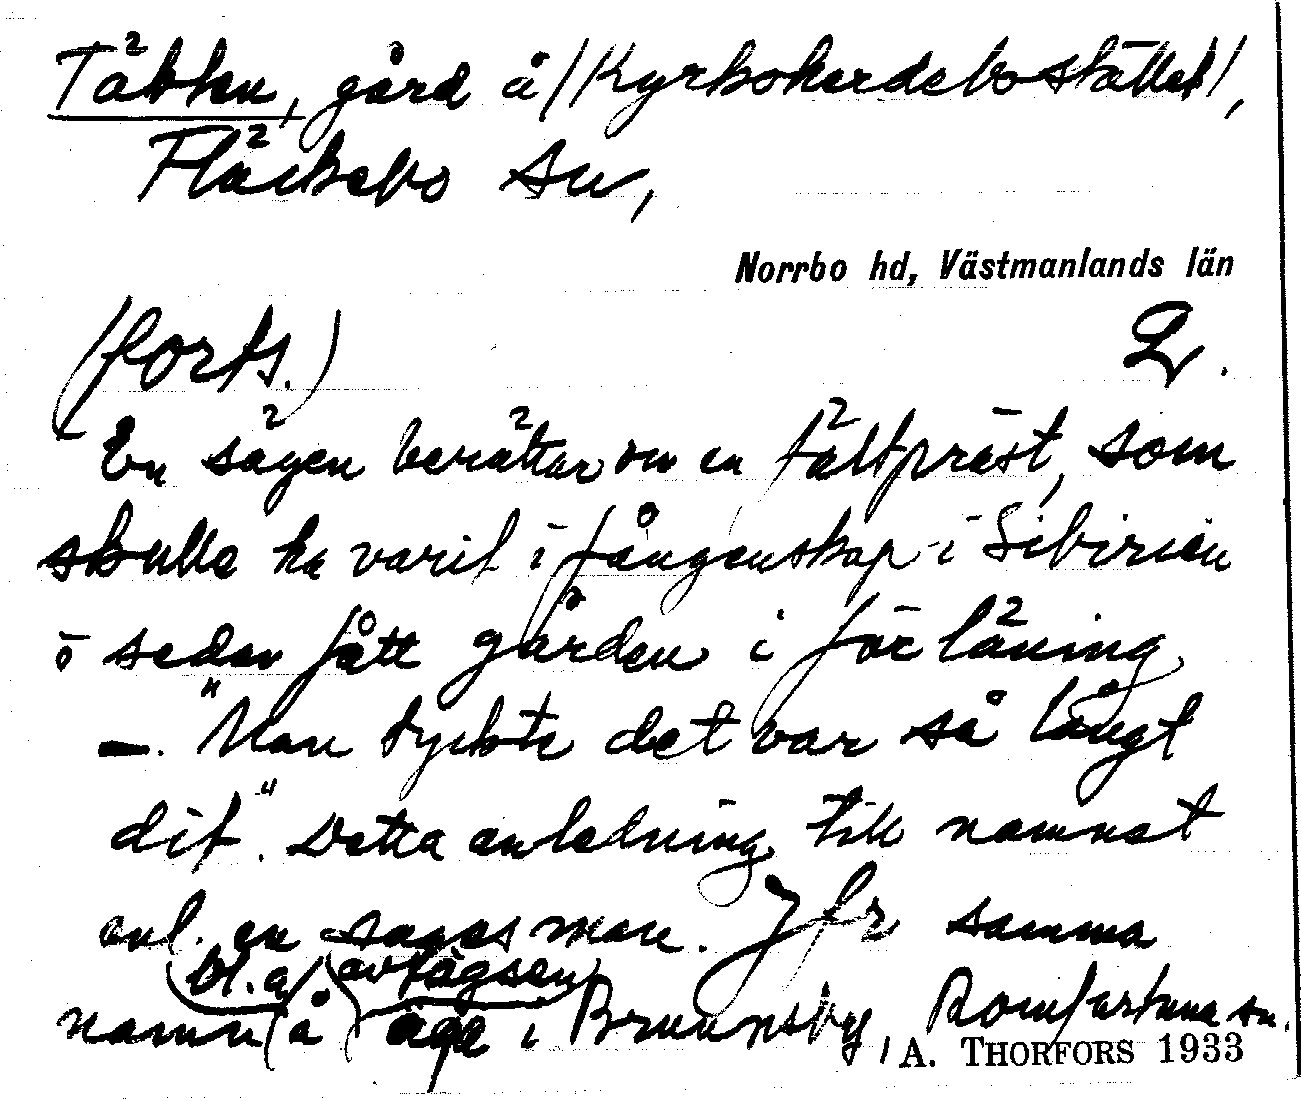 Täkten, gård å (Kyrkoherdebostället),
Fläckebo sn,
Norrbo hd, Västmanlands län
(forts.) 2.
En sägen berättar om en fältpräst, som
skulle ha varit i fångenskap i Sibirien
o sedan fått gården i förläning
—. "Man tyckte det var så långt
dit". Detta anledning till namnet
enl. en sagesman. Jfr samma
bl.a. avlägsen
namn å äga i Brunnsby, Romfartuna sn.
A. THORFORS 1933